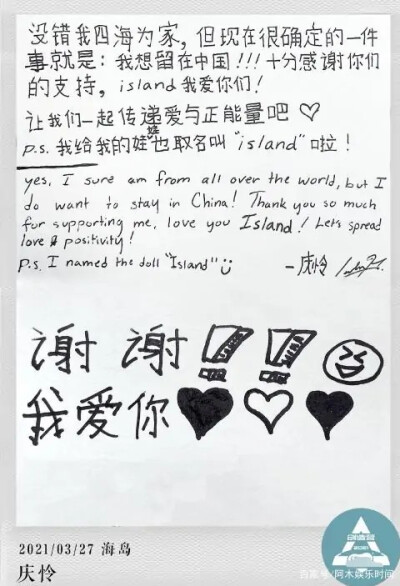 没错我四海为家，但现在很确定的一件
事就是：我想留在中国!!! 十分感谢你们
的支持，island 我爱你们！
让我们一起传递爱与正能量吧 ♡
p.s. 我给我的娃娃也取名叫 "island" 啦！
yes, I sure am from all over the world, but I
do want to stay in China! Thank you so much
for supporting me, love you Island! Lets spread
love & positivity!
P.s. I named the doll "Island" ü
-庆怜
谢谢!!
我爱你♥♡♥
2021/03/27 海岛
庆怜
创造营
百家号/阿木娱乐时间